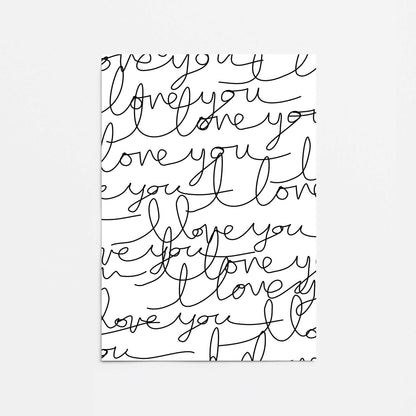 love you I
I love you
I love you
I love you
e you I love
I love you
ve you I love y
I love y
love you I lo
ou I l